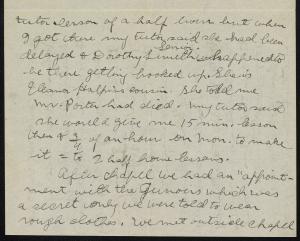 tutor lesson of a half hour but when
I got there my tutor said she had been
delayed & Dorothy Smith Senior happened to
be there getting booked up. She is
Eleanor Halpin's cousin. She told me
Mr. Porter had died. My tutor said
she would give me 15 min. lesson
then & 3/4 of an hour on Mon. to make
it = to 2 half hour lessons.
After chapel we had an "appoint-
ment with the Juniors which was
a secret only we were told to wear
rough clothes. We met outside Chapel